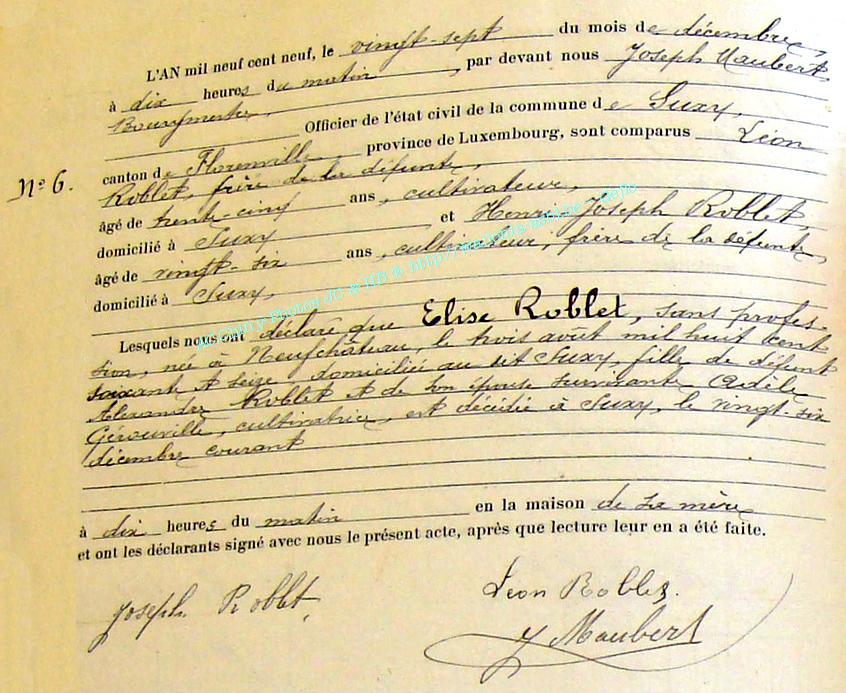 L'AN mil neuf cent neuf, le vingt-sept du mois de décembre,
à dix heures du matin, par devant nous Joseph Maubert,
Bourgmestre,
Officier de l'état civil de la commune de Suxy,
Nº 6.
canton de Florenville province de Luxembourg, sont comparus Léon
Roblet, frère de la défunte,
âgé de trente-cinq ans, cultivateur,
domicilié à Suxy et Henri Joseph Roblet,
âgé de vingt-six ans, cultivateur, frère de la défunte,
domicilié à Suxy,
Lesquels nous ont déclaré que Elise Roblet, sans profes-
sion, née à Neufchâteau, le trois août mil huit cent
soixante et seize, domiciliée au dit Suxy, fille de défunt
Alexandre Roblet et de son épouse survivante Adèle
Gérouville, cultivatrice, est décédée à Suxy, le vingt-six
décembre courant
à dix heures du matin en la maison de sa mère
et ont les déclarants signé avec nous le présent acte, après que lecture leur en a été faite.
Joseph Roblet,
Léon Roblet.
J Maubert